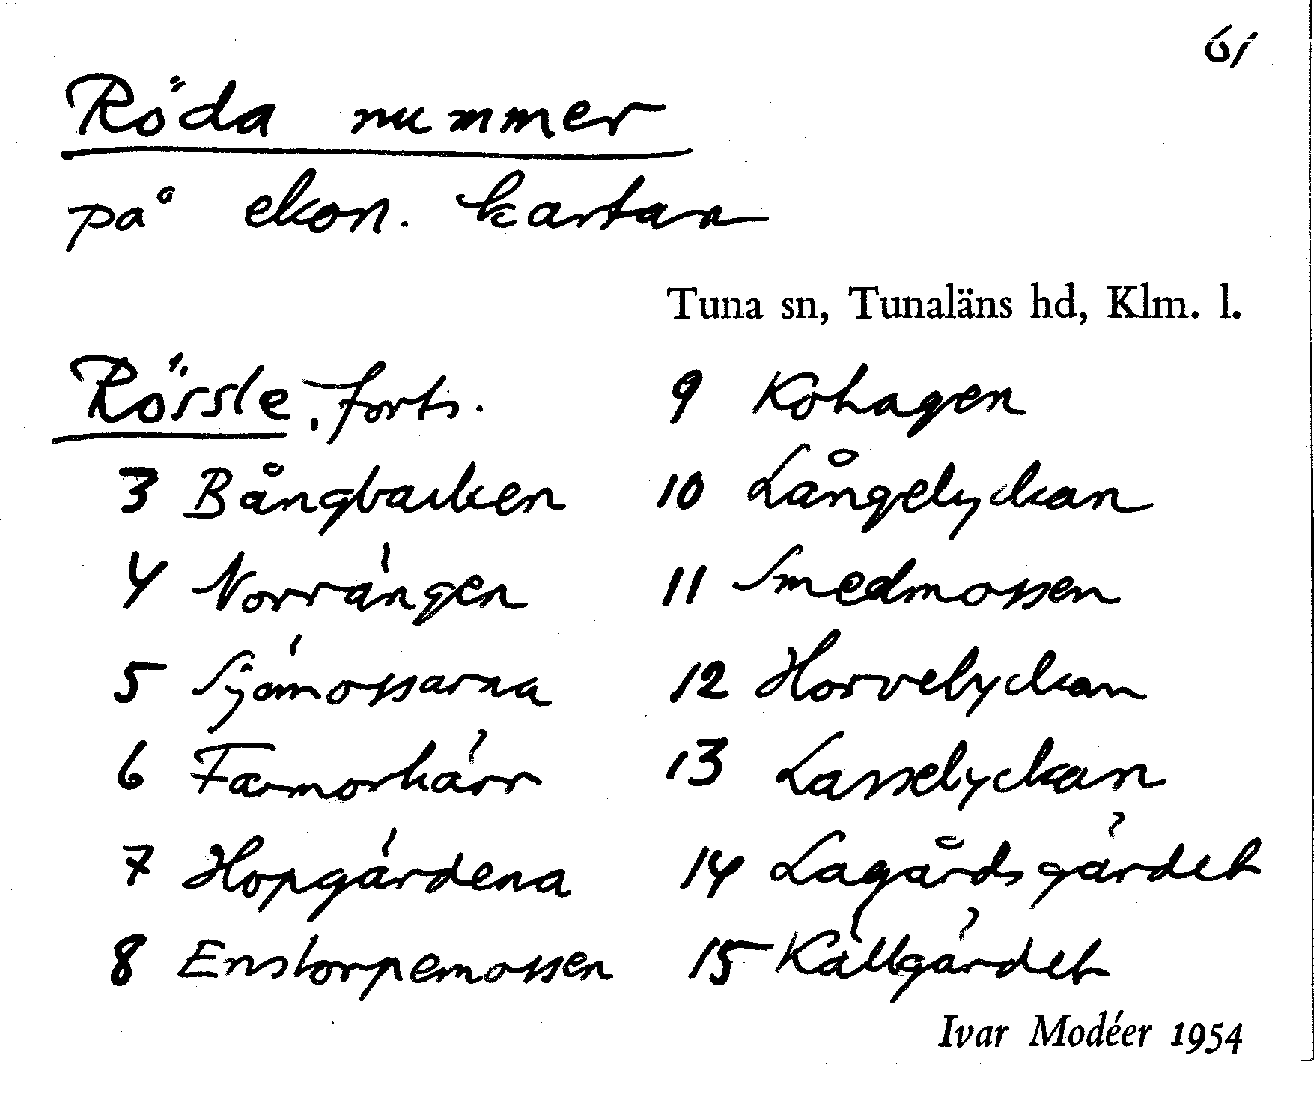 61
Röda nummer
på ekon. kartan
Tuna sn, Tunaläns hd, Klm. l.
Rössle, forts.
3 Bångbacken
4 Norrängen
5 Sjömossarna
6 Farmorkärr
7 Hopgärdena
8 Enstorpemossen
9 Kohagen
10 Långelyckan
11 Smedmossen
12 Horvelyckan
13 Lasselyckan
14 Lagårdsgärdet
15 Källgärdet
Ivar Modéer 1954